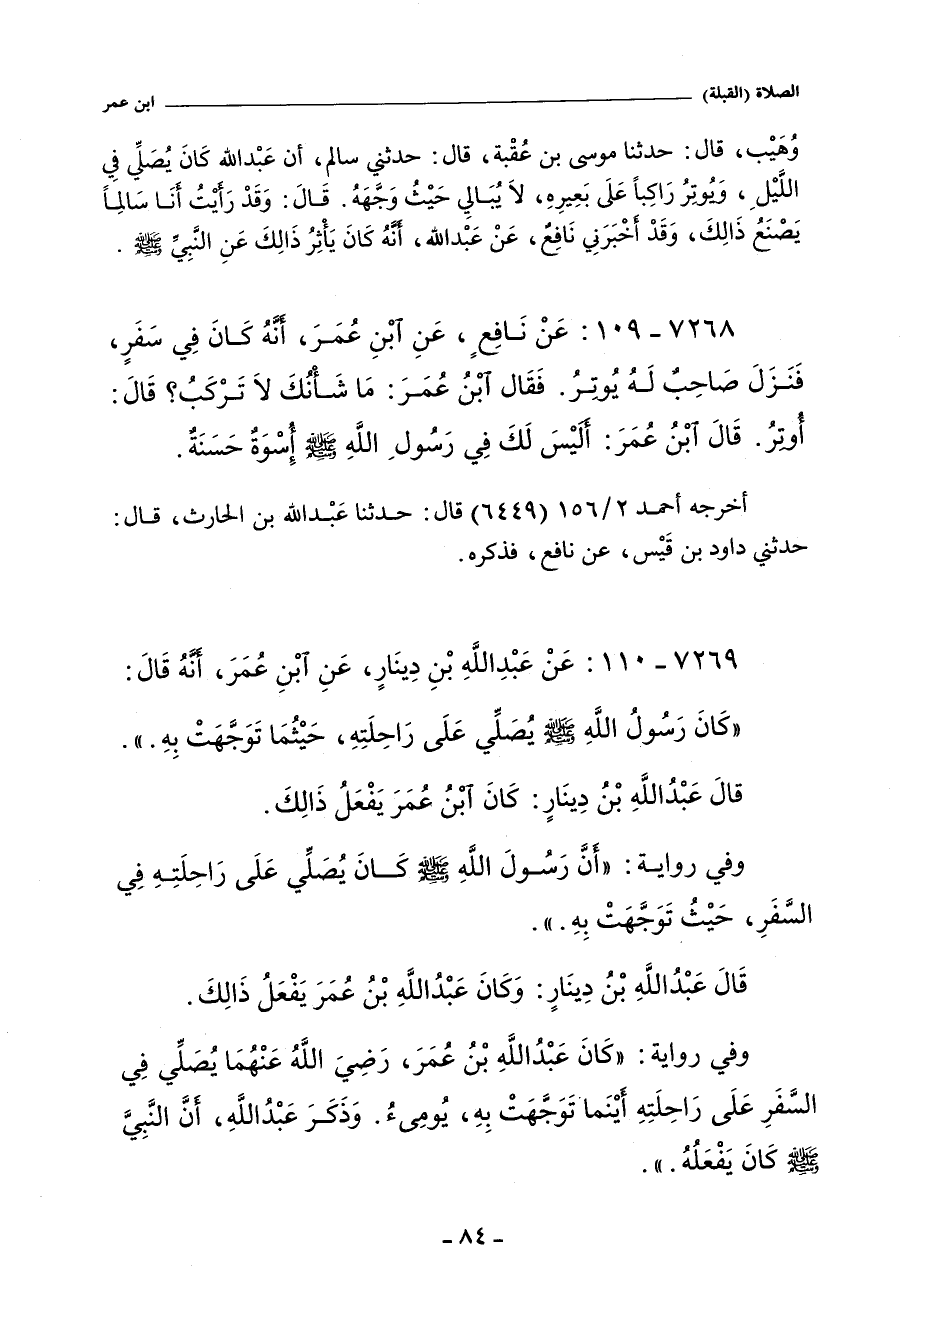 الصلاة (القبلة) ابن عمر
وُهَيْب، قال: حدثنا موسى بن عُقْبة، قال: حدثني سالم، أن عَبْدالله كَانَ يُصَلِّي فِي
اللَّيْلِ، وَيُوتِرُ رَاكِباً عَلَى بَعِيرِهِ، لاَ يُبَالِي حَيْثُ وَجَّهَهُ. قَالَ: وَقَدْ رَأَيْتُ أَنَا سَالِماً
يَصْنَعُ ذَالِكَ، وَقَدْ أَخْبَرَنِي نَافِعٌ، عَنْ عَبْدالله، أَنَّهُ كَانَ يَأْثِرُ ذَالِكَ عَنِ النَّبِيِّ ﷺ.
٧٢٦٨ - ١٠٩ : عَنْ نَافِعٍ، عَنِ ٱبْنِ عُمَرَ، أَنَّهُ كَانَ فِي سَفَرٍ،
فَنَزَلَ صَاحِبٌ لَهُ يُوتِرُ. فَقَال ٱبْنُ عُمَرَ: مَا شَأْنُكَ لاَ تَرْكَبُ؟ قَالَ:
أُوتِرُ. قَالَ ٱبْنُ عُمَرَ: أَلَيْسَ لَكَ فِي رَسُولِ اللَّهِ ﷺ إُسْوَةٌ حَسَنَةٌ.
أخرجه أحمد ١٥٦/٢ (٦٤٤٩) قال: حدثنا عَبْدالله بن الحارث، قال:
حدثني داود بن قَيْس، عن نافع، فذكره.
٧٢٦٩ - ١١٠ : عَنْ عَبْدِاللَّهِ بْنِ دِينَارٍ، عَنِ ٱبْنِ عُمَرَ، أَنَّهُ قَالَ:
«كَانَ رَسُولُ اللَّهِ ﷺ يُصَلِّي عَلَى رَاحِلَتِهِ، حَيْثُمَا تَوَجَّهَتْ بِهِ.».
قالَ عَبْدُاللَّهِ بْنُ دِينَارٍ: كَانَ ٱبْنُ عُمَرَ يَفْعَلُ ذَالِكَ.
وفي رواية: «أَنَّ رَسُولَ اللَّهِ ﷺ كَانَ يُصَلِّي عَلَى رَاحِلَتِهِ فِي
السَّفَرِ، حَيْثُ تَوَجَّهَتْ بِهِ.».
قَالَ عَبْدُاللَّهِ بْنُ دِينَارٍ: وَكَانَ عَبْدُاللَّهِ بْنُ عُمَرَ يَفْعَلُ ذَالِكَ.
وفي رواية: «كَانَ عَبْدُاللَّهِ بْنُ عُمَرَ، رَضِيَ اللَّهُ عَنْهُمَا يُصَلِّي فِي
السَّفَرِ عَلَى رَاحِلَتِهِ أَيْنَما تَوَجَّهَتْ بِهِ، يُومِىءُ. وَذَكَرَ عَبْدُاللَّهِ، أَنَّ النَّبِيَّ
ﷺ كَانَ يَفْعَلُهُ.».
- ٨٤ -